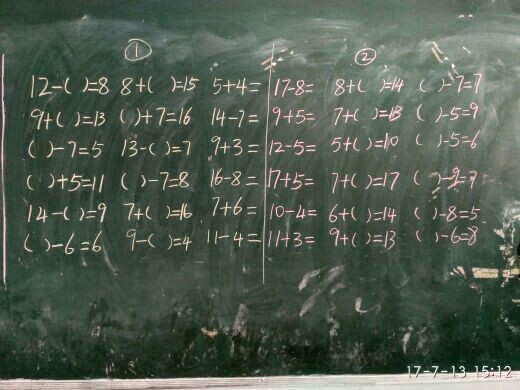 ① ②
12-( )=8 8+( )=15 5+4= 17-8= 8+( )=14 ( )-7=7
9+( )=13 ( )+7=16 14-7= 9+5= 7+( )=13 ( )-5=9
( )-7=5 13-( )=7 9+3= 12-5= 5+( )=10 ( )-5=6
( )+5=11 ( )-7=8 16-8= 17+5= 7+( )=17 ( )-9=7
14-( )=9 7+( )=16 7+6= 10-4= 6+( )=14 ( )-8=5
( )-6=6 9-( )=4 11-4= 11+3= 9+( )=13 ( )-6=8
17-7-13 15:12